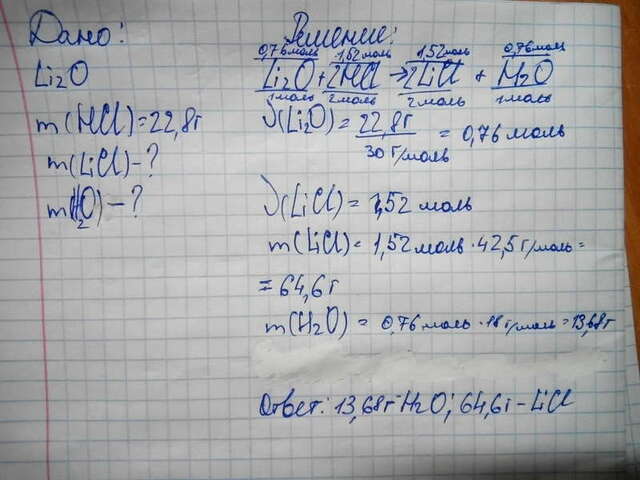 Дано:
Li2O
m(HCl)=22,8г
m(LiCl)-?
m(H2O)-?
Решение:
0,76моль 1,52моль 1,52моль 0,76моль
Li2O+2HCl→2LiCl+H2O
1моль 2моль 2моль 1моль
ν(Li2O)=22,8г/30г/моль=0,76моль
ν(LiCl)=1,52моль
m(LiCl)=1,52моль·42,5г/моль=
=64,6г
m(H2O)=0,76моль·18г/моль=13,68г
Ответ: 13,68г-H2O; 64,6г-LiCl